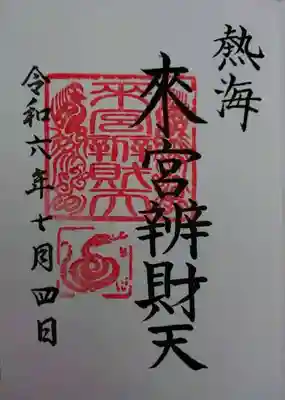 熱海
來宮辨財天
令和六年十月四日
來宮辨財天